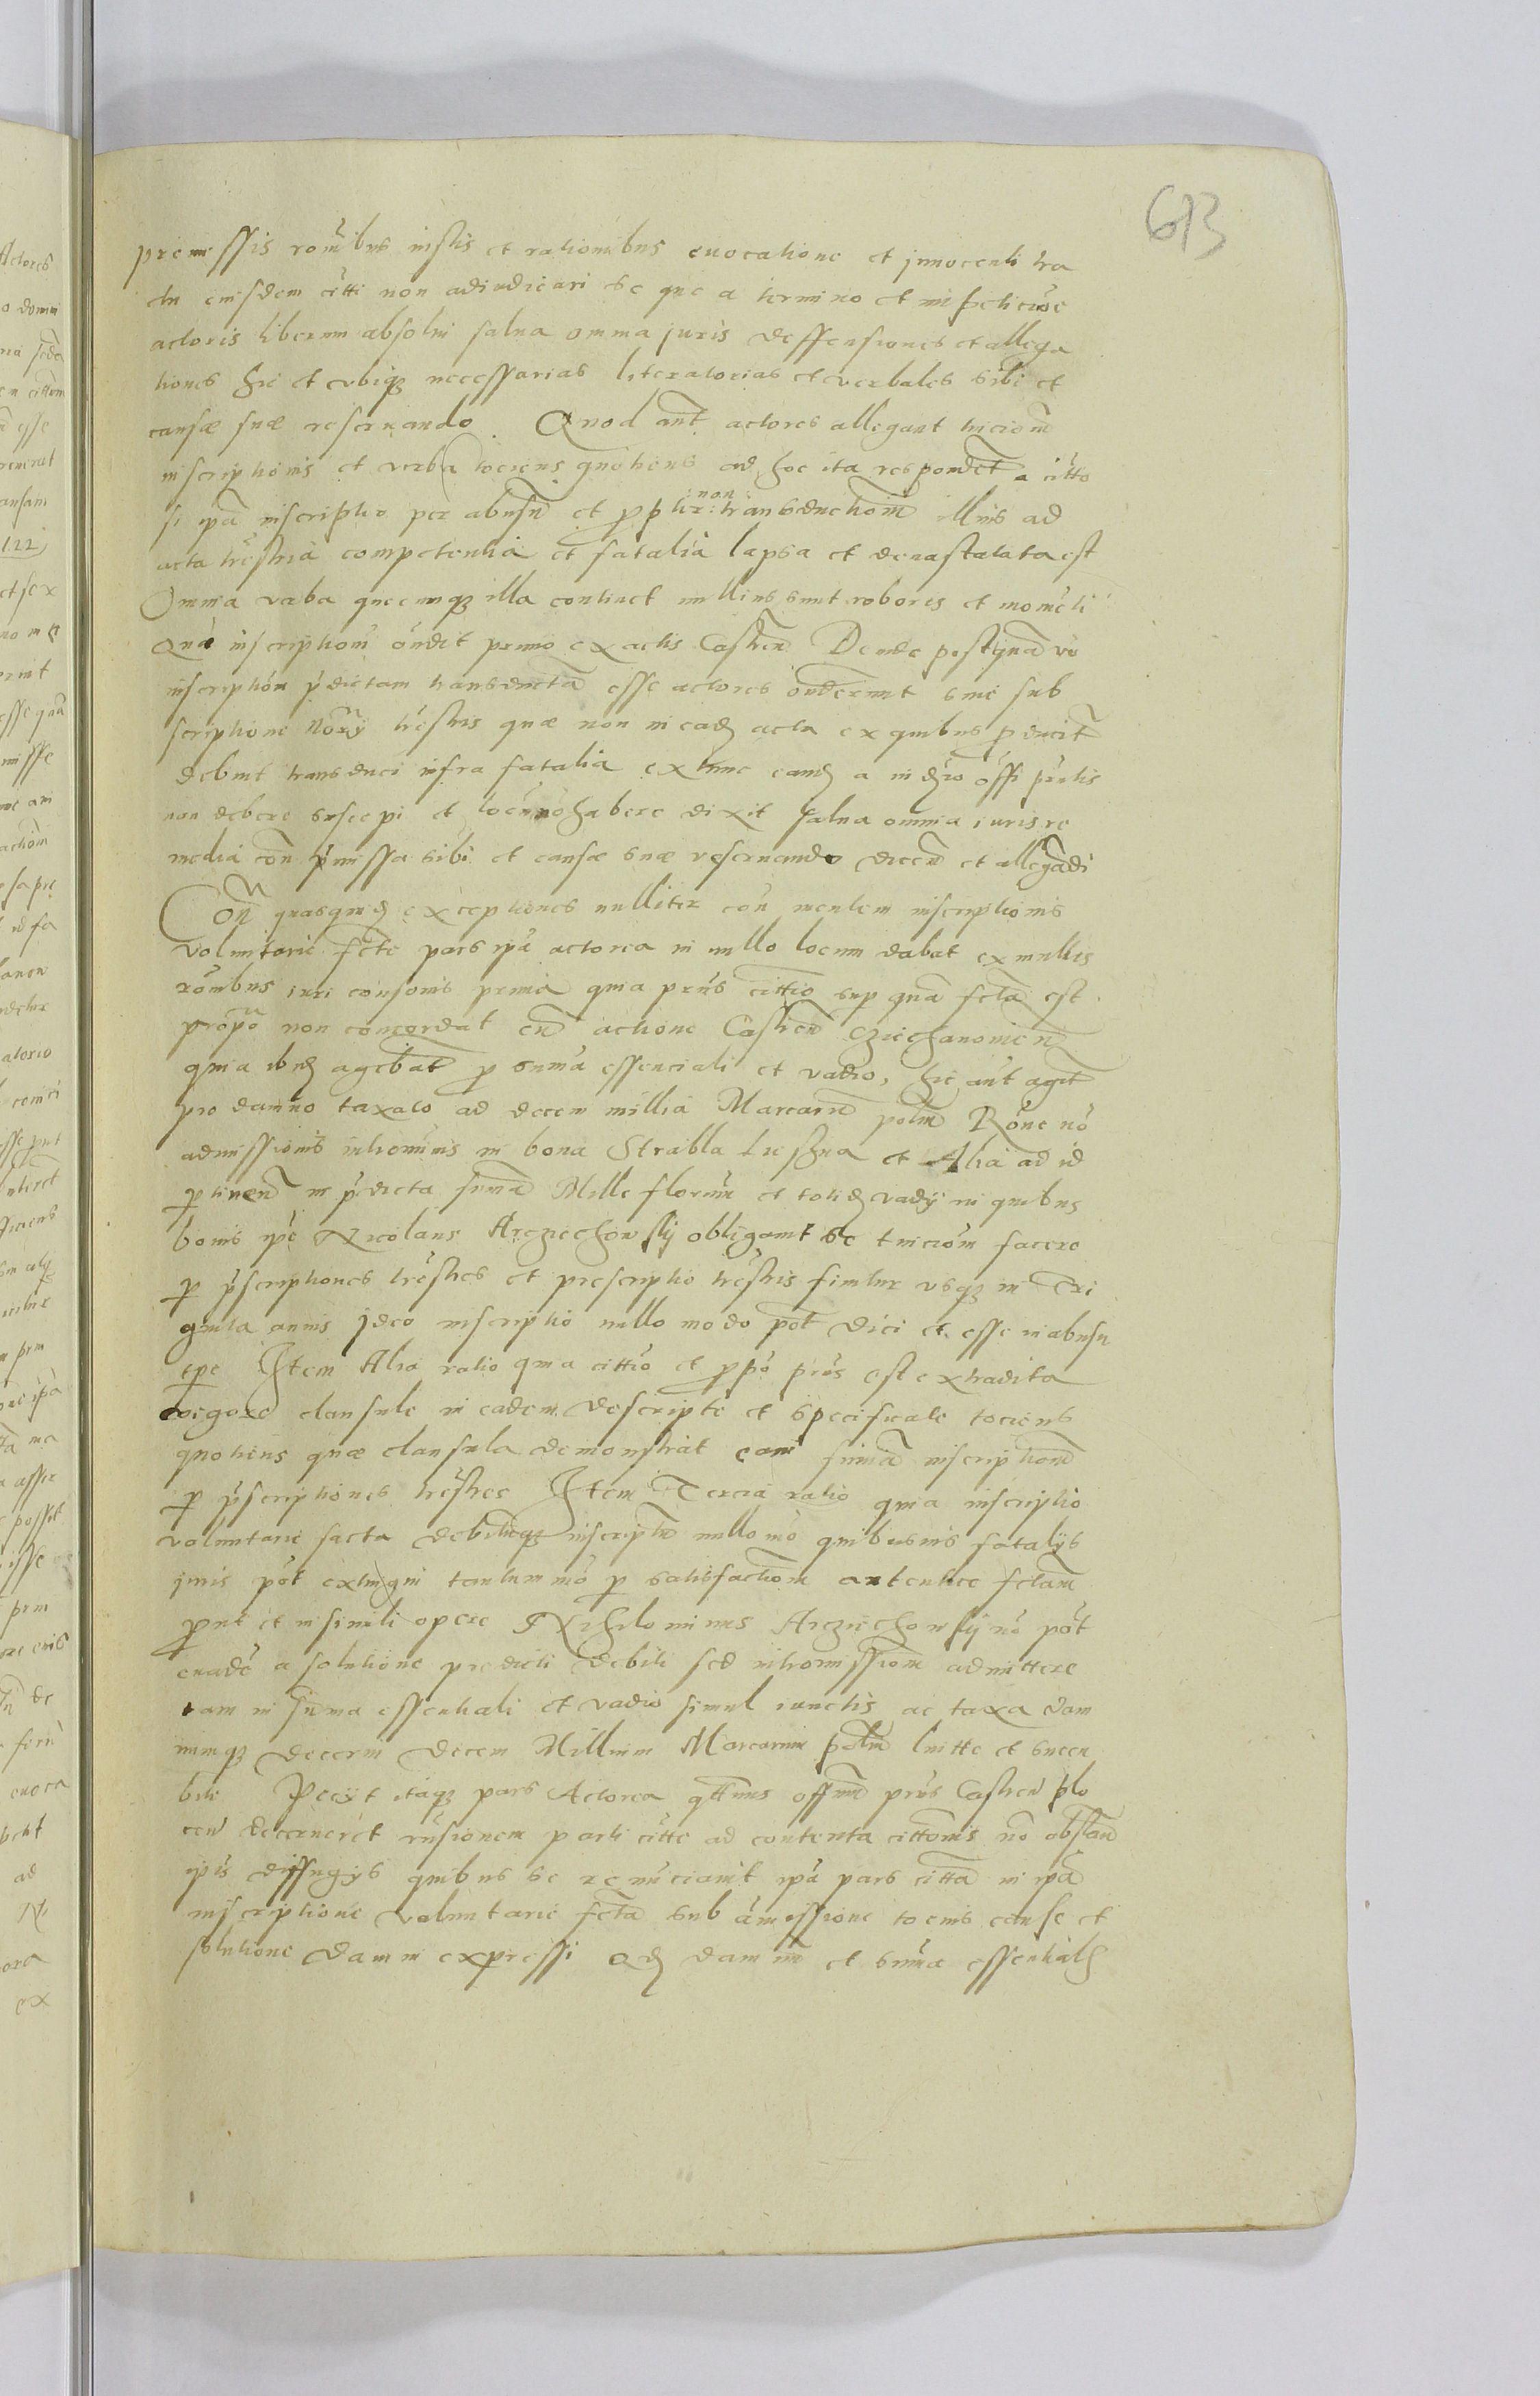 613
premissis rõnibus iustis et rationibus euocatione et innocenti tra
ctu eiusdem citti non adiudicari se que a termino et impeticiõe
actoris liberum absolui salua omnia juris deffensiones et allega
tiones hic et vbiq₃ necessarias literatorias et verbales sibi et
causæ suæ reseruando. Quod aut actores allegant tuicionẽ
inscriptionis et verba tociens quotiens ad hoc ita respondet a citto
si ipa inscriptio per abusũ et propter non transductionẽ illius ad
acta trestria competentia et fatalia lapsa et deuastatata est
Omnia verba quecunq₃ illa continet nullius sunt roboris et momẽti
Quã inscriptionẽ õndit primo ex actis Castreñ Deinde postquã vo
inscriptiõem pdictam transductã esse actores õnderunt sine sub
scriptione Notarij trestris quæ non in eadẽ acta ex quibus producit
debuit transduci infra fatalia ex tunc eand a iudicio offi pñtis
non debere suscepi et locũ nõ habere dixit salua omnia iuris re
media con pmissa sibi et causæ suæ reseruando dicend et allegãdi
Con quasquid exceptiones nulliter con mentem inscriptionis
voluntarie fcte pars ipa actorea in nullo locum dabat ex multis
rõnibus iuri consonis prima quia prñs cittio sup quã fcta est
propo non concordat cũ actione Castreñ Cziechanouieñ
quia ibid agebat p suma essenciali et vadio, hic aut agit
pro damno taxato ad decem millia Marcarũ polñ Rõne nõ
admissionis intromiss in bona Strabla et Alia ad id
ptineñ in pdicta sumã Mille florenũ et totid vadij in quibus
bonis ipe Nicolaus Arcziechowskij obligauit se tuiciõem facere
p pscriptiones trestres et prescriptio trestris finitur vsq₃ in Tri
ginta annis jdeo inscriptio nullo modo pot dici et esse in abusu
tpe Item Alia ratio quia cittio et ppo prñs est extradita
vigore clausule in eadem descripte et specificate tociens
quotiens quæ clausula demonstrat eam sumã inscriptionẽ
p pscriptiones trestres Item Tercia ratio quia inscriptio
voluntarie facta debitiq₃ inscripti nullo mõ quibusuis fatalijs
juris pot extingui tantummõ p satisfactionẽ autentice fctam
prout et in simili opere Nihilominus Arcziechowskij nõ pot
euadẽ a solutione predicti debiti sed intromissionẽ admittere
tam in suma essentiali et vadio simul iunctis ac taxa dam
nimq₃ decerni decem Millium Marcarum polñ luitte et succu
bite Peciit itaq₃ pars Actorea qttenus officium prñs Castreñ plo
ceñ decerneret rñsionem parti citte ad contenta cittionis nõ obstañ
ipis diffugijs quibus se renũciauit ipa pars citta in ipa
inscriptione voluntarie fcta sub amissione tocius cause et
solutione damni expressi damnũ et sumæ essentialis